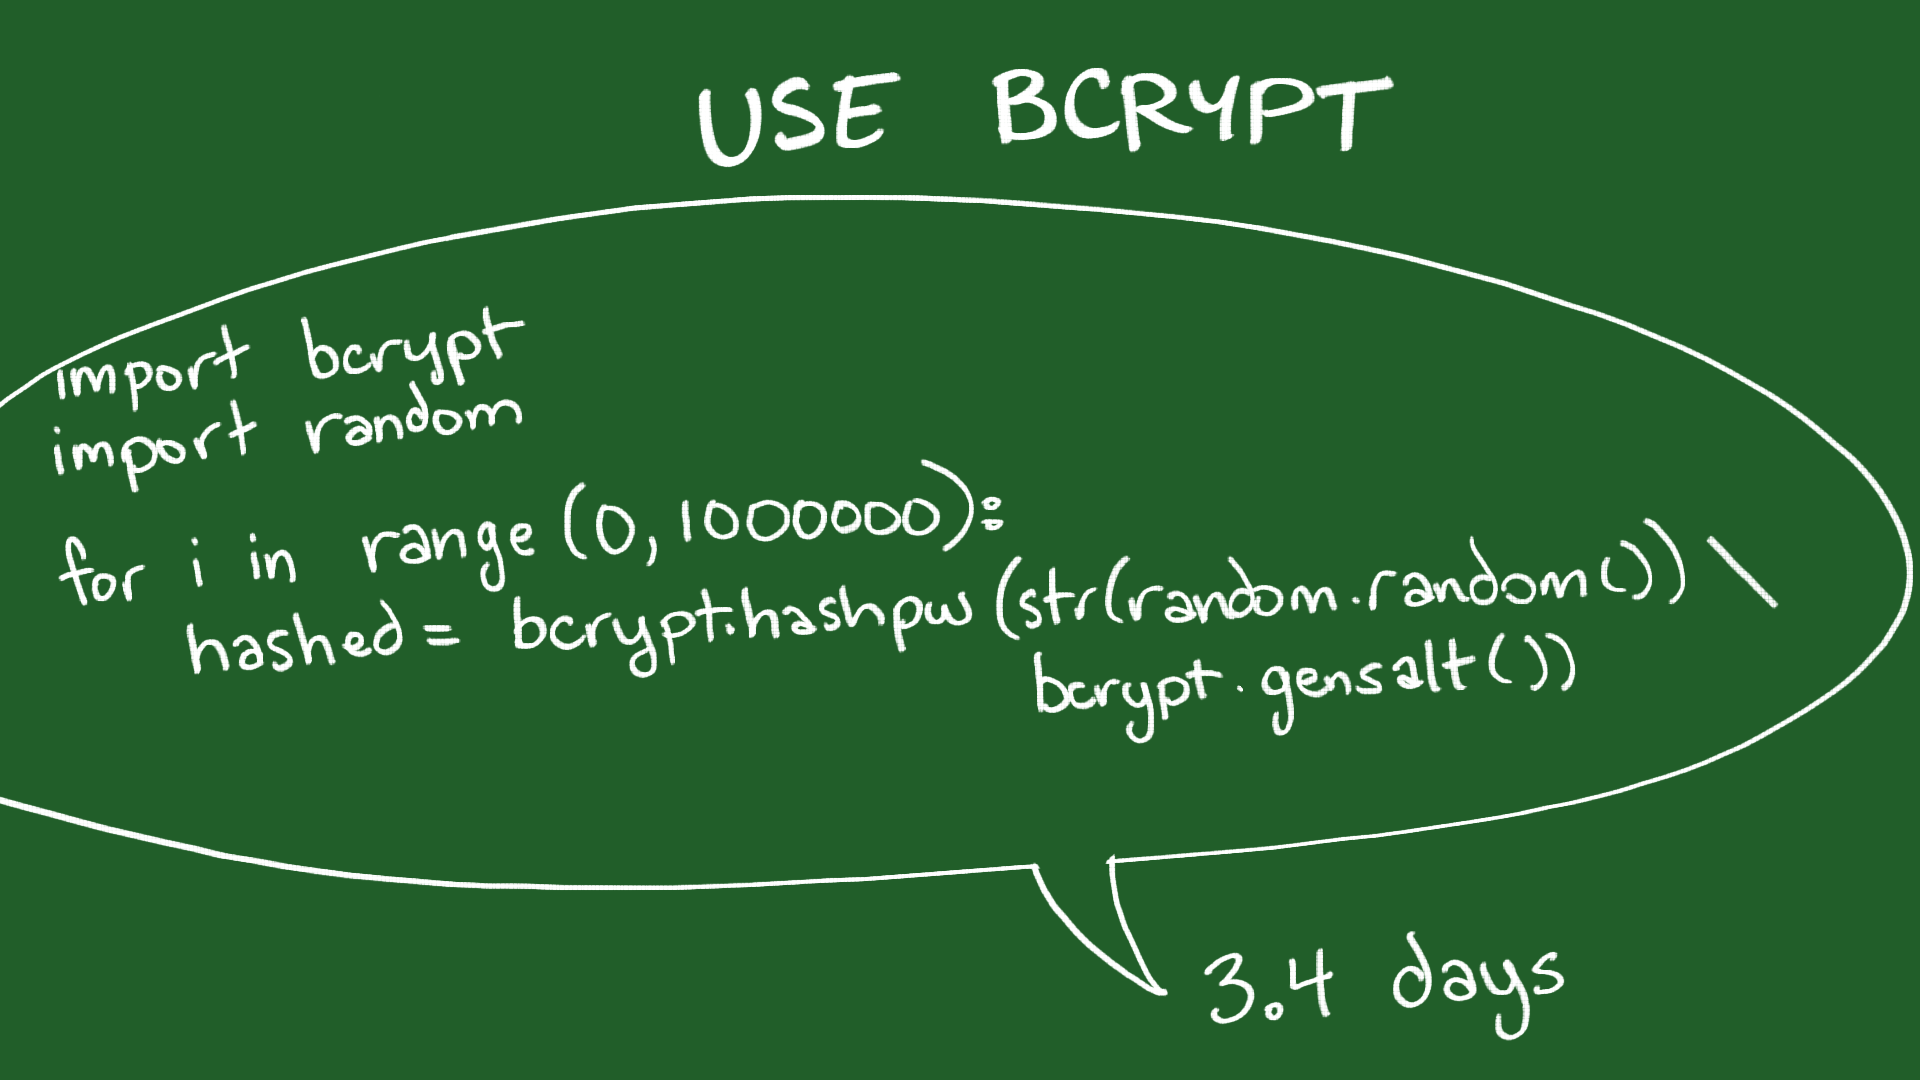 USE BCRYPT
import bcrypt
import random
for i in range (0, 1000000):
hashed = bcrypt.hashpw (str(random.random())) \
bcrypt.gensalt())
3.4 days